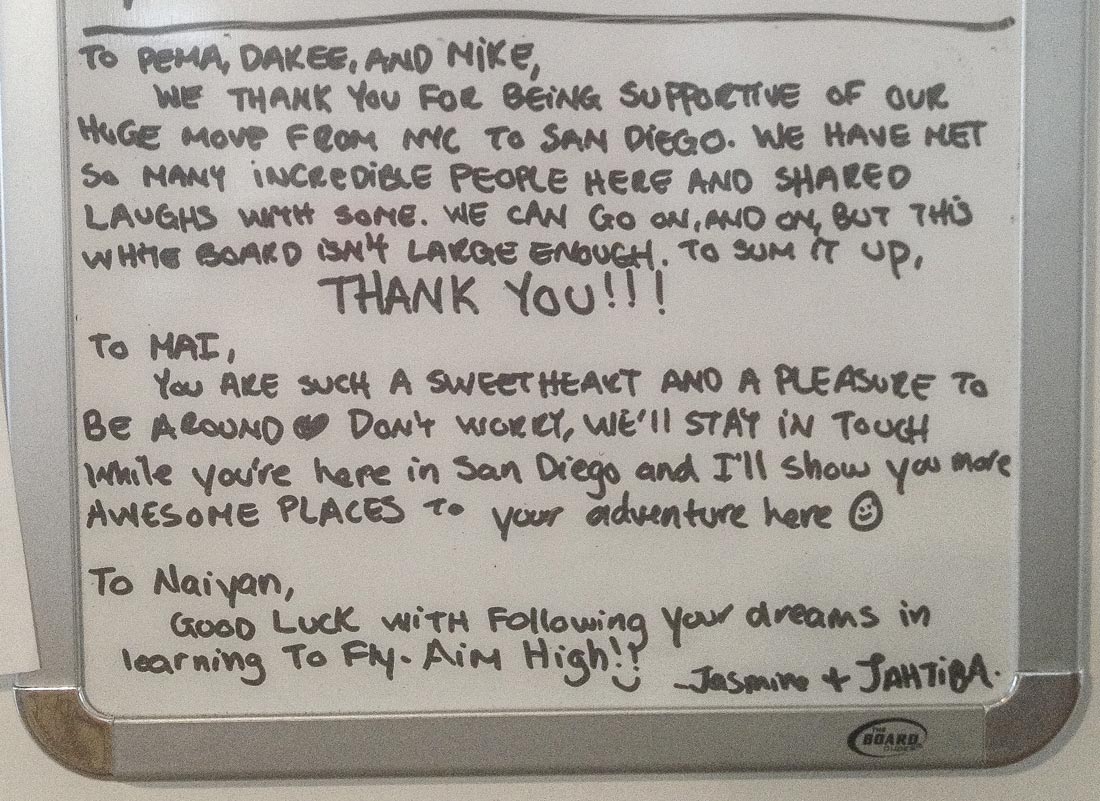 To PEMA, DAKEE, AND MIKE,
WE THANK YOU FOR BEING SUPPORTIVE OF OUR
HUGE MOVE FROM NYC TO SAN DIEGO. WE HAVE MET
SO MANY INCREDIBLE PEOPLE HERE AND SHARED
LAUGHS WITH SOME. WE CAN GO ON, AND ON, BUT THIS
WHITE BOARD ISN'T LARGE ENOUGH. TO SUM IT UP,
THANK YOU!!!
To MAI,
YOU ARE SUCH A SWEETHEART AND A PLEASURE TO
BE AROUND ♥ DON'T WORRY, WE'll STAY IN TOUCH
While you're here in San Diego and I'll show you more
AWESOME PLACES TO your adventure here ☺
To Naiyan,
GOOD LUCK WITH Following your dreams in
learning To Fly. Aim High!!
-Jasmine + JAHTIBA.
THE
BOARD
DUDES